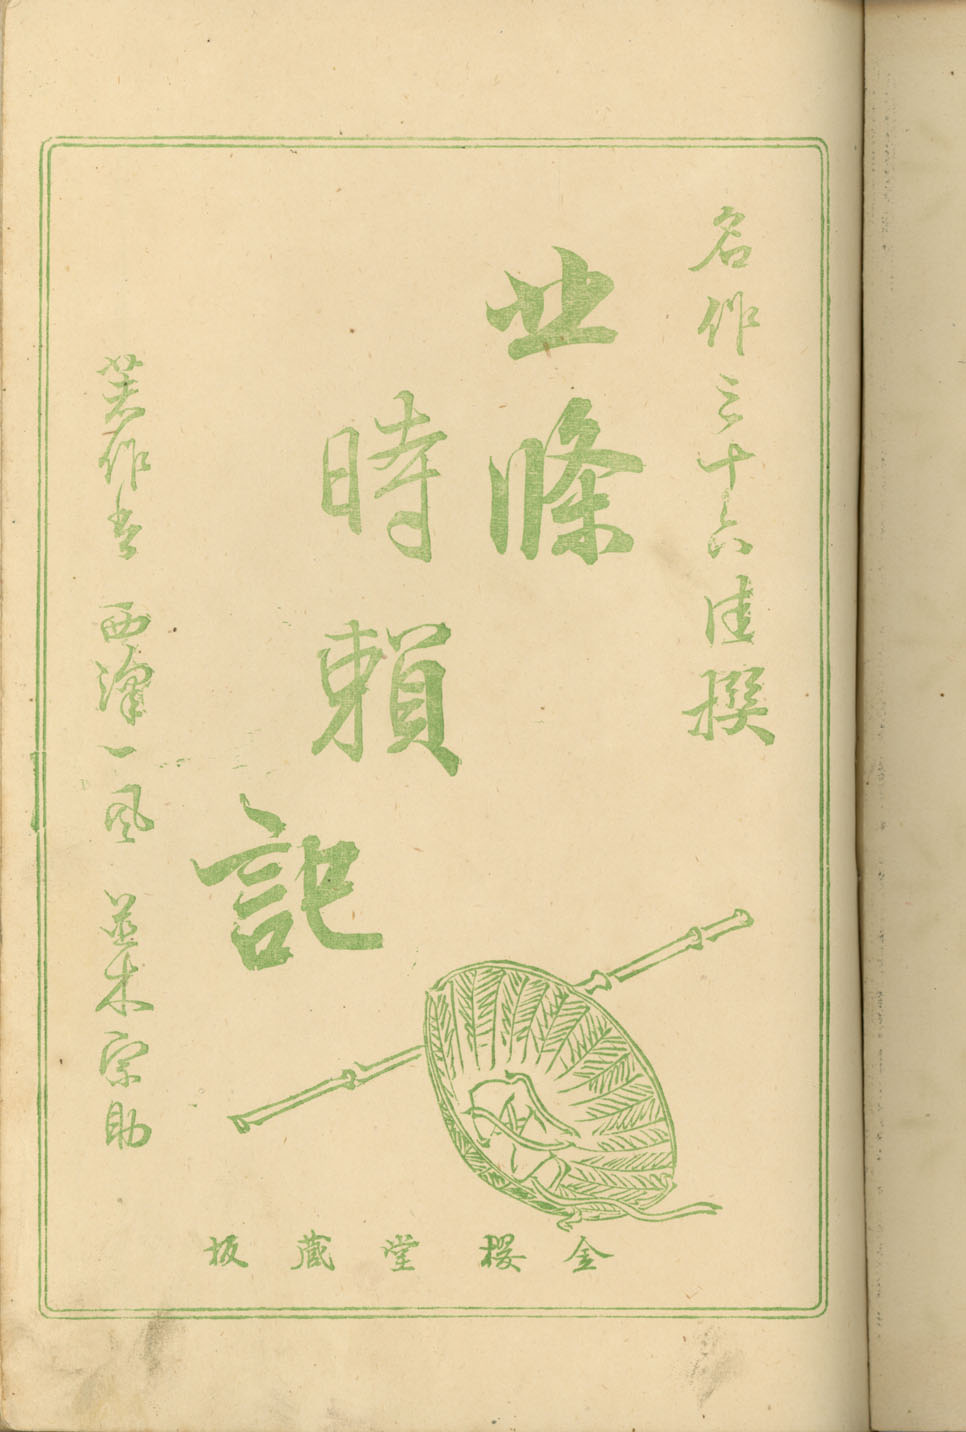 名作三十六佳撰
北條
時頼
記
著作者 西澤一風 並木宗助
金櫻堂蔵板